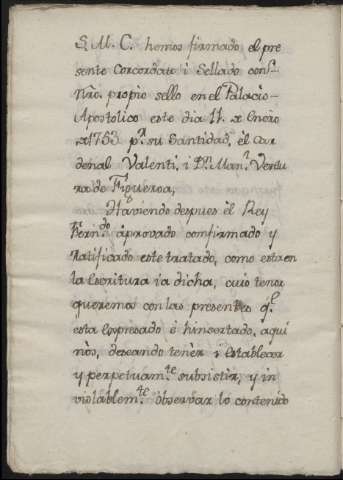 S. M. C. hemos firmado el pre
sente Concordato i Sellado con
ñro. propio sello en el Palacio
Apostolico este dia 11. de Enero
de 1753 pr. su Santidad, el Car
denal Valenti, i Dn. Manl. Ventu
ra de Figueroa,
Haviendo despues el Rey
Ferndo aprovado confirmado y
ratificado este tratado, como esta en
la Escritura ia dicha, cuio tenor
queremos con las presentes qe
esta Expresado e hinsertado, aqui
nòs, deseando tenèr i Establecer
y perpetuamte. subsistìr, y in
violablemte. observar lo contenido